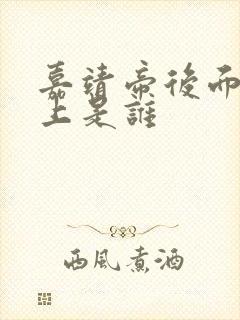 嘉靖帝後而
上是誰
西風煮酒